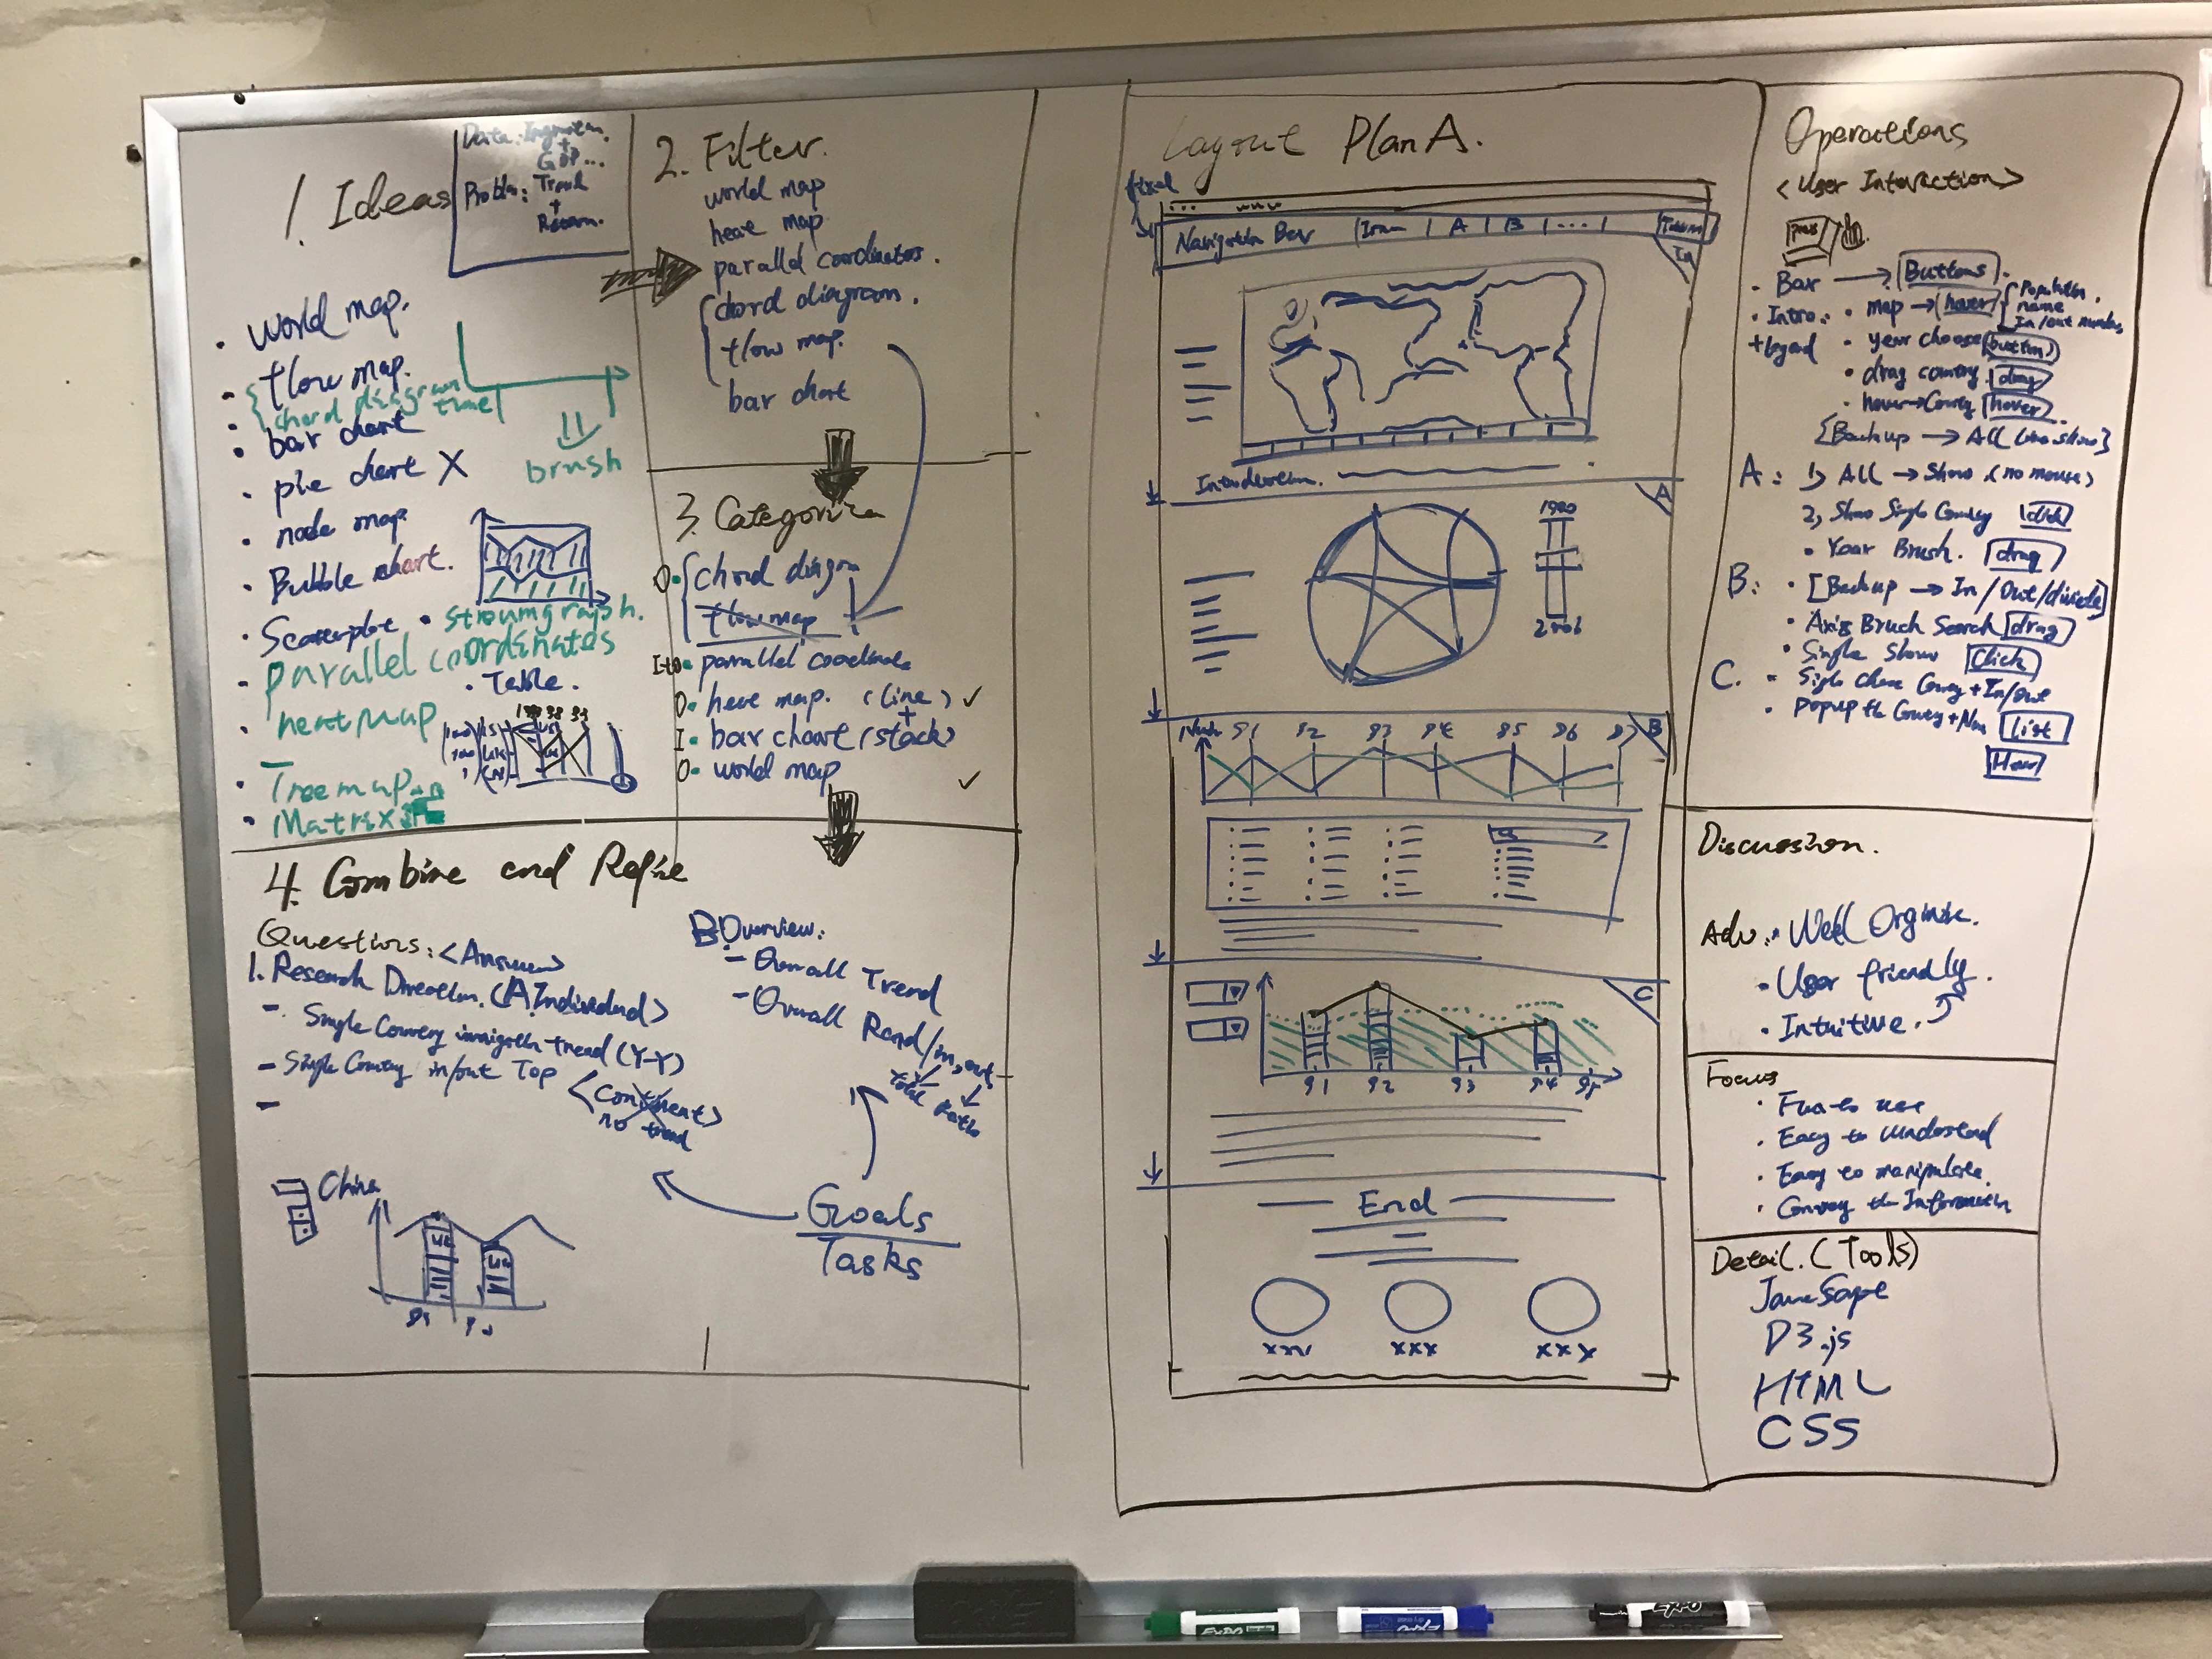 1. Ideas
Data:
+
GDP...
Problem: Trend
+
world map.
flow map.
chord diagram
time
bar chart
brush
pie chart X
node map
Bubble chart.
Scatterplot
streamgraph.
parallel coordinates
Table.
heatmap
Treemap
Matrix
2. Filter.
world map
heat map
parallel coordinates.
chord diagram.
flow map.
bar chart
3. Categorize
O
chord diagram
flow map
parallel coordinate
O heat map. (line) ✓
+
I bar chart (stack)
O world map ✓
4. Combine and Refine
Questions: <Answer>
1. Research Direction. (A Individual)
- Single Country immigration trend (Y-Y)
- Single Country in/out Top
<Continent>
no trend
-
China
B Overview:
- Overall Trend
- Overall Rand/in, out
Total
Ratio
Goals
Tasks
Layout Plan A.
fixed
Navigation Bar | | A | B | ... |
Introduction.
A
1980
B
91 92 93 94 95 96 97
C
91 92 93 94 95
End
xxx xxx xxx
Operations
<User Interaction>
Bar → Buttons
Intro: map → hover
Population.
name
In/out number
+ legend
year choose button
drag country drag
hover → Country hover
[Backup → All
A: 1) All → Show (no mouse)
2, Show Single Country click
Year Brush. drag
B: [Backup → In/Out/divide]
Axis Brush Search drag
Single Show Click
C. Country + In/out
List
Discussion.
Adv: Well
User friendly.
Intuitive.
Focus
use
Easy to understand
Easy to manipulate.
Convey the Information
Detail. (Tools)
D3.js
HTML
CSS
EXPO
EXPO